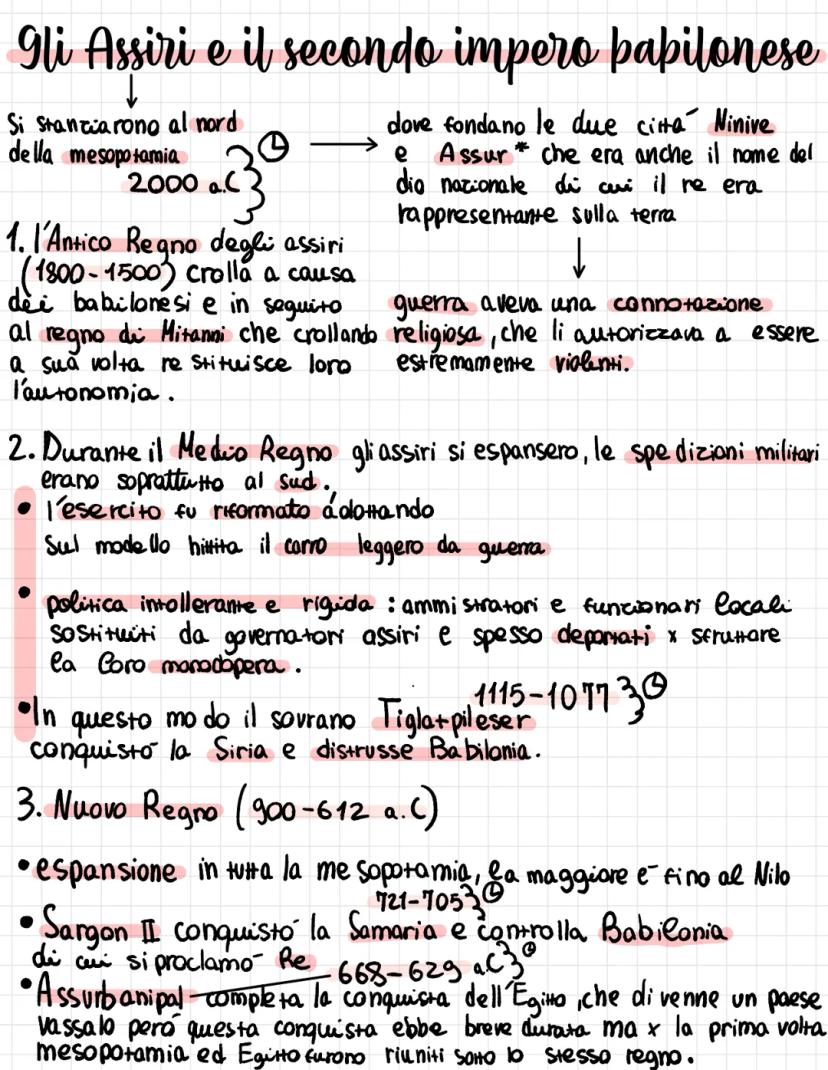 gli Assiri e il secondo impero babilonese
Si stanziarono al nord
della mesopotamia
2000 a.C
dove fondano le due cittá Ninive
e Assur* che era anche il nome del
dio nazionale di cui il re era
rappresentante sulla terra
guerra aveva una connotazione
religiosa, che li autorizzava a essere
estremamente violenti.
1. l'Antico Regno degli assiri
(1800-1500) crolla a causa
dei babilonesi e in seguito
al regno di Mitanni che crollando
a sua volta re stituisce loro
l'autonomia.
2. Durante il Medio Regno gli assiri si espansero, le spedizioni militari
erano soprattutto al sud.
• l'esercito fu riformato adottando
sul modello hittita il carro leggero da guerra
• politica intollerante e rigida: ammistratori e funzionari locali
sostituiti da governatori assiri e spesso deportati x sfruttare
la loro manodopera.
1115-1077
• In questo modo il sovrano Tiglatpileser
conquistó la Siria e distrusse Babilonia.
3. Nuovo Regno (900-612 a.C)
• espansione in tutta la mesopotamia, la maggiore é fino al Nilo
721-705
• Sargon II conquistó la Samaria e controlla Babilonia
di cui si proclamó Re
668-629 a.C
• Assurbanipal completa la conquista dell'Egitto, che divenne un paese
vassalo peró questa conquista ebbe breve durata ma x la prima volta
mesopotamia ed Egitto furono riuniti sotto lo stesso regno.